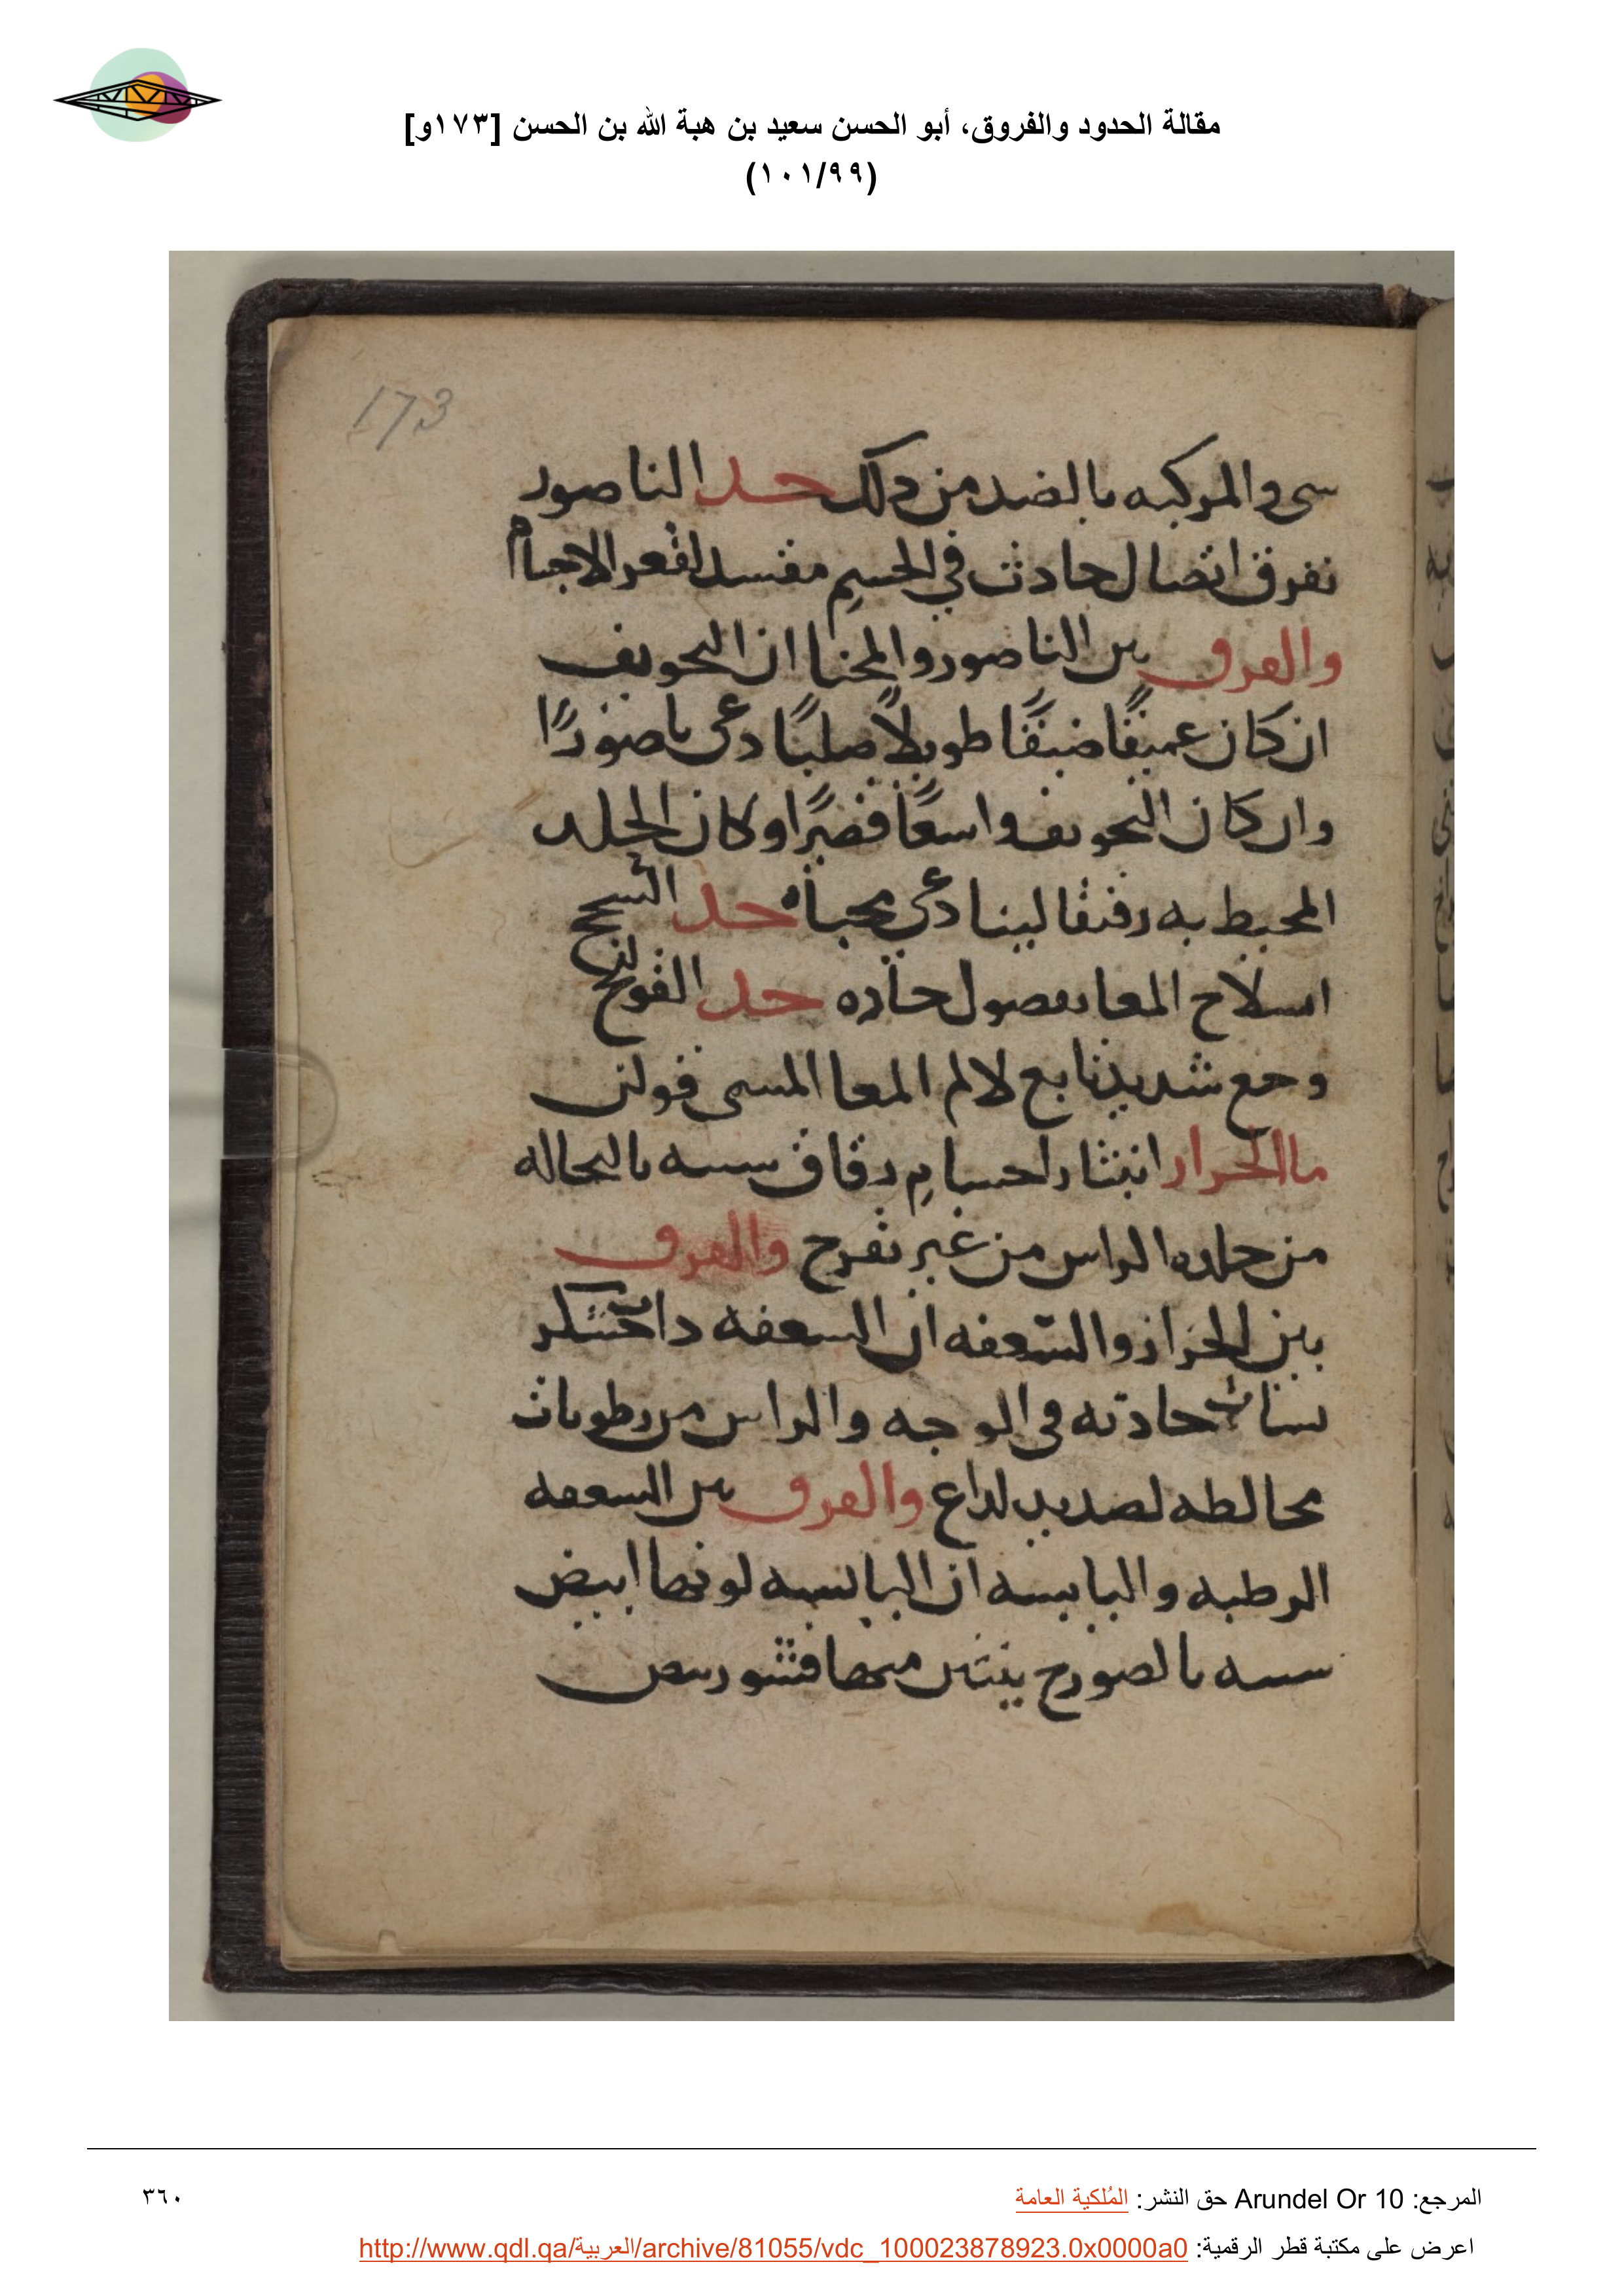 مقالة الحدود والفروق، أبو الحسن سعيد بن هبة الله بن الحسن [١٧٣و]
(١٠١/٩٩)
173
سى والمركبه بالضد من ذلك حد الناصور
تفرق اتصال حادث في الجسم مفسد لقعر الاجسام
والفرق بين الناصور والمخبا ان التجويف
ان كان عميقًا ضيقًا طويلًا صلبًا دعى ناصورًا
وان كان التجويف واسعًا قصيرًا وكان الجلد
المحيط به رقيقا لينا دعى مخبأ حد السحج
انسلاخ المعا بفصول حاده حد القولنج
وجع شديد تابع لالم المعا المسمى قولن
ما الحزاز انتثار اجسام دقاق شبيه بالنخاله
من جلده الراس من غير تقرح والفرق
بين الحزاز والسعفه ان السعفه ذات خشكر
بثات حادثه في الوجه والراس من رطوبات
مخالطه لصديد لداع والفرق بين السعفه
الرطبه واليابسه ان اليابسه لونها ابيض
شبيه بالصورج ينتثر منها قشور بيض
المرجع: Arundel Or 10 حق النشر: المُلكية العامة
٣٦٠
اعرض على مكتبة قطر الرقمية: http://www.qdl.qa/العربية/archive/81055/vdc_100023878923.0x0000a0